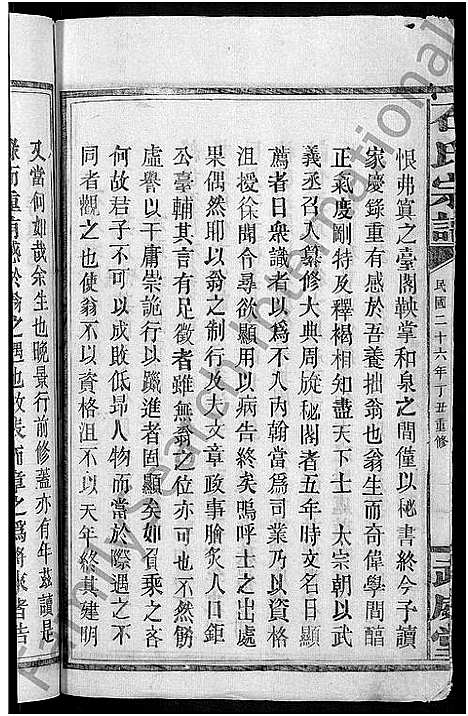 石氏宗譜
民國二十六年丁丑重修
武威堂
恨弗寘之臺閣鞅掌和泉之間僅以秘書終今予讀
家慶錄重有感於吾養拙翁也翁生而奇偉學問醞
正氣度剛特及釋褐相知盡天下士 太宗朝以武
義丞召入纂修大典周旋秘閣者五年時文名日顯
薦者日衆識者以爲不入內翰當爲司業乃以資格
沮授徐聞令尋欲顯用以病告終矣嗚呼士之出處
果偶然耶以翁之制行及夫文章政事膾炙人口鉅
公臺輔其言有足徵者雖無翁之位亦可也不然竊
虛譽以干庸崇詭行以躐進者固顯矣如負乘之吝
何故君子不可以成敗低昂人物而當於際遇之不
同者觀之也使翁不以資格沮不以天年終其建明
又當何如哉余生也晚景行前修蓋亦有年茲讀是
錄而重有感於翁之遇也故表而章之爲將來者告
FamilySearch International